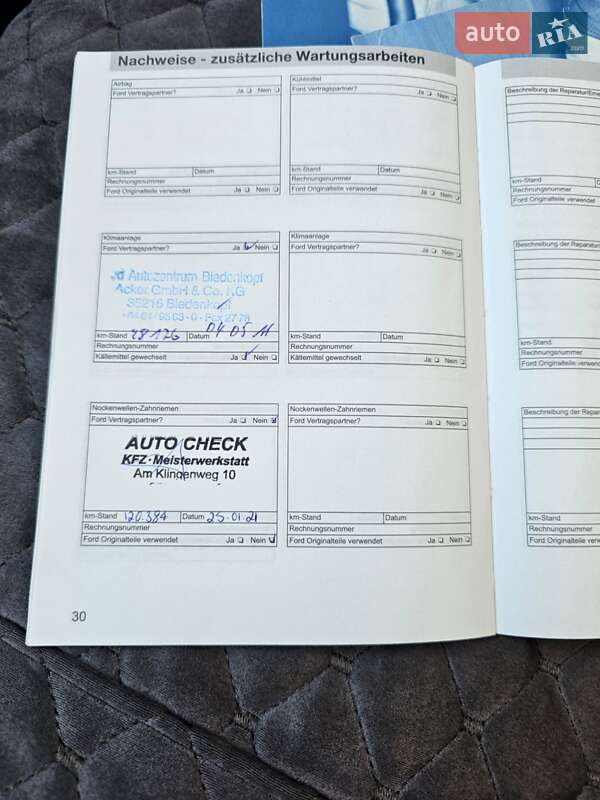 auto RIA .com
Nachweise - zusätzliche Wartungsarbeiten
Airbag
Ford Vertragspartner? Ja Nein
km-Stand Datum
Rechnungsnummer
Ford Originalteile verwendet Ja Nein
Kühlmittel
Ford Vertragspartner? Ja Nein
km-Stand Datum
Rechnungsnummer
Ford Originalteile verwendet Ja Nein
Klimaanlage
Ford Vertragspartner? Ja Nein
Autozentrum Biedenkopf
Acker GmbH & Co. KG
35216 Biedenkopf
km-Stand 28126 Datum 04 05 11
Rechnungsnummer
Kältemittel gewechselt Ja Nein
Klimaanlage
Ford Vertragspartner? Ja Nein
km-Stand Datum
Rechnungsnummer
Kältemittel gewechselt Ja Nein
Nockenwellen-Zahnriemen
Ford Vertragspartner? Ja Nein
AUTO CHECK
KFZ-Meisterwerkstatt
Am Klingenweg 10
km-Stand 120.384 Datum 25.01.21
Rechnungsnummer
Ford Originalteile verwendet Ja Nein
Nockenwellen-Zahnriemen
Ford Vertragspartner? Ja Nein
km-Stand Datum
Rechnungsnummer
Ford Originalteile verwendet Ja Nein
30
Beschreibung der Reparatur/Erne
km-Stand
Rechnungsnummer
Ford Originalteile verw
Beschreibung der Reparatur
km-Stand
Rechnungsnummer
Ford Originalteile
Beschreibung der Repara
km-Stand
Rechnungsnummer
Ford Originalteile